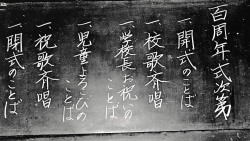 百周年式次第
一、開式のことば
一、校歌斉唱
一、学校長お祝いの
ことば
一、児童よろこびの
ことば
一、祝歌斉唱
一、閉式のことば